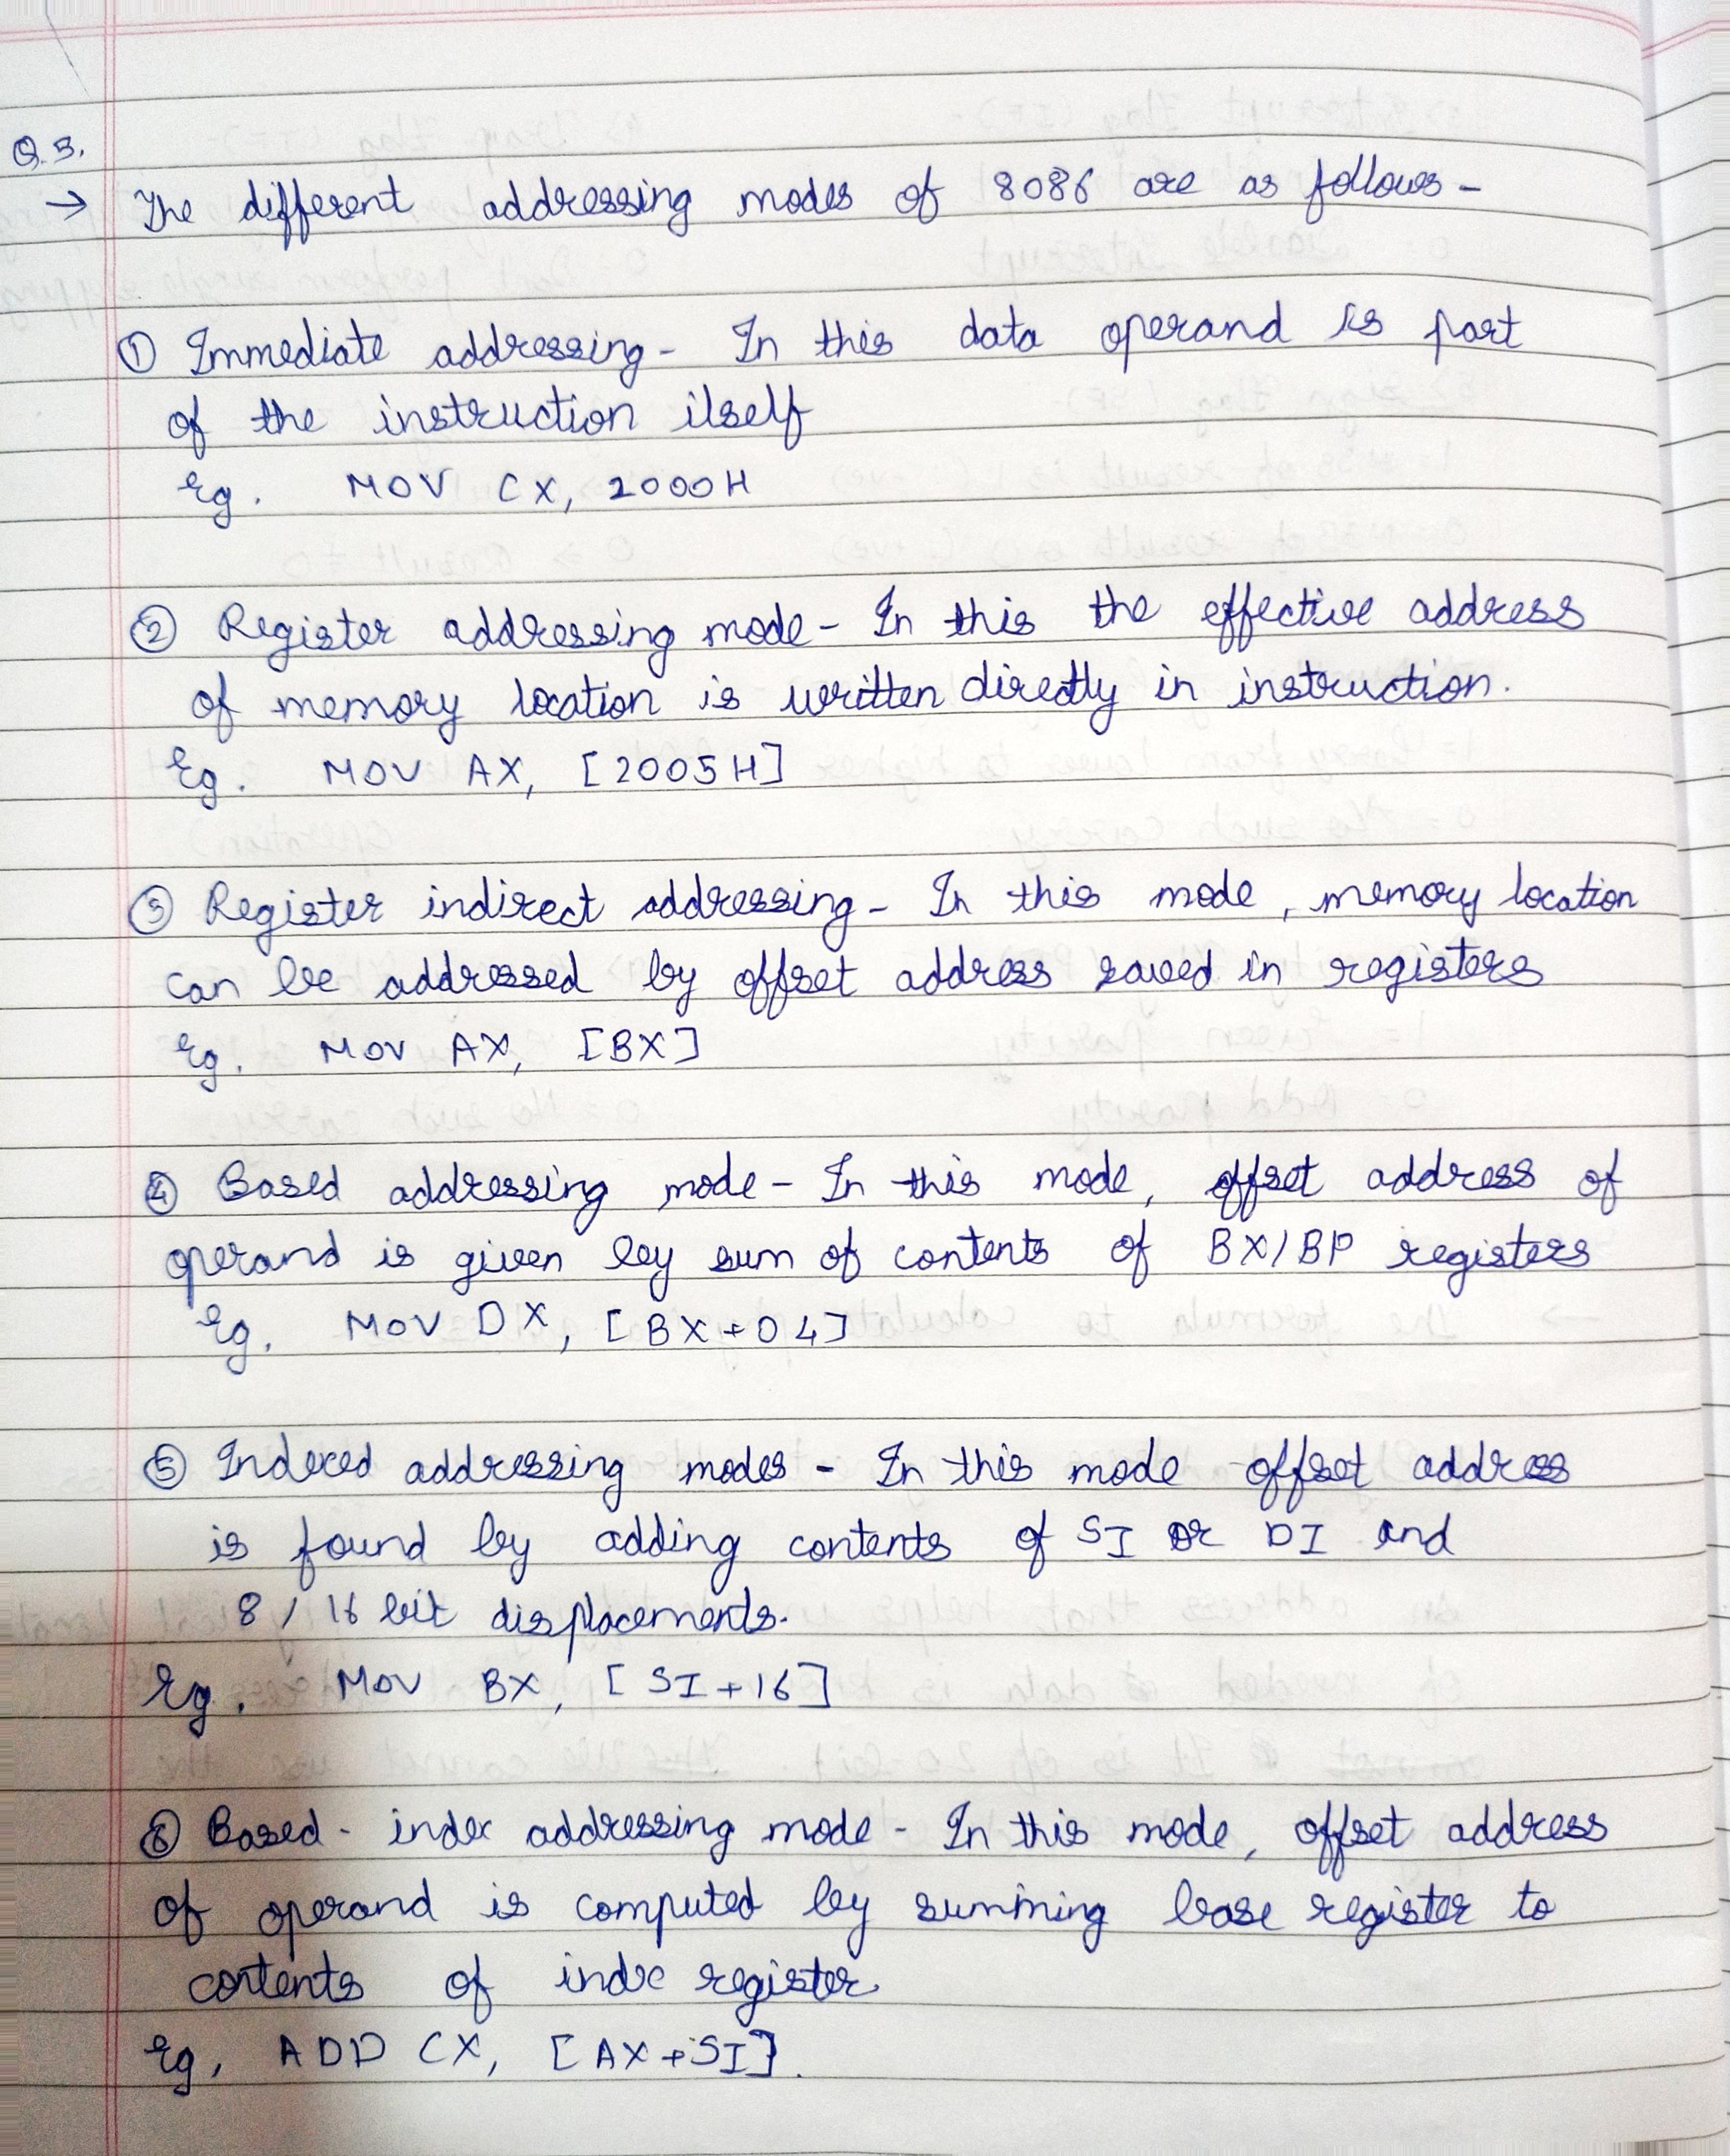 Q.3.
→ The different addressing modes of 8086 are as follows -
① Immediate addressing - In this data operand is part
of the instruction itself
Eg. MOV CX, 2000H
② Register addressing mode - In this the effective address
of memory location is written directly in instruction.
Eg. MOV AX, [2005H]
③ Register indirect addressing - In this mode, memory location
can be addressed by offset address saved in registers
Eg. MOV AX, [BX]
④ Based addressing mode - In this mode, offset address of
operand is given by sum of contents of BX/BP registers
Eg. MOV DX, [BX+04]
⑤ Indexed addressing modes - In this mode offset address
is found by adding contents of SI or DI and
8/16 bit displacements.
Eg. MOV BX, [SI+16]
⑥ Based - index addressing mode - In this mode, offset address
of operand is computed by summing base register to
contents of index register.
Eg, ADD CX, [AX+SI].